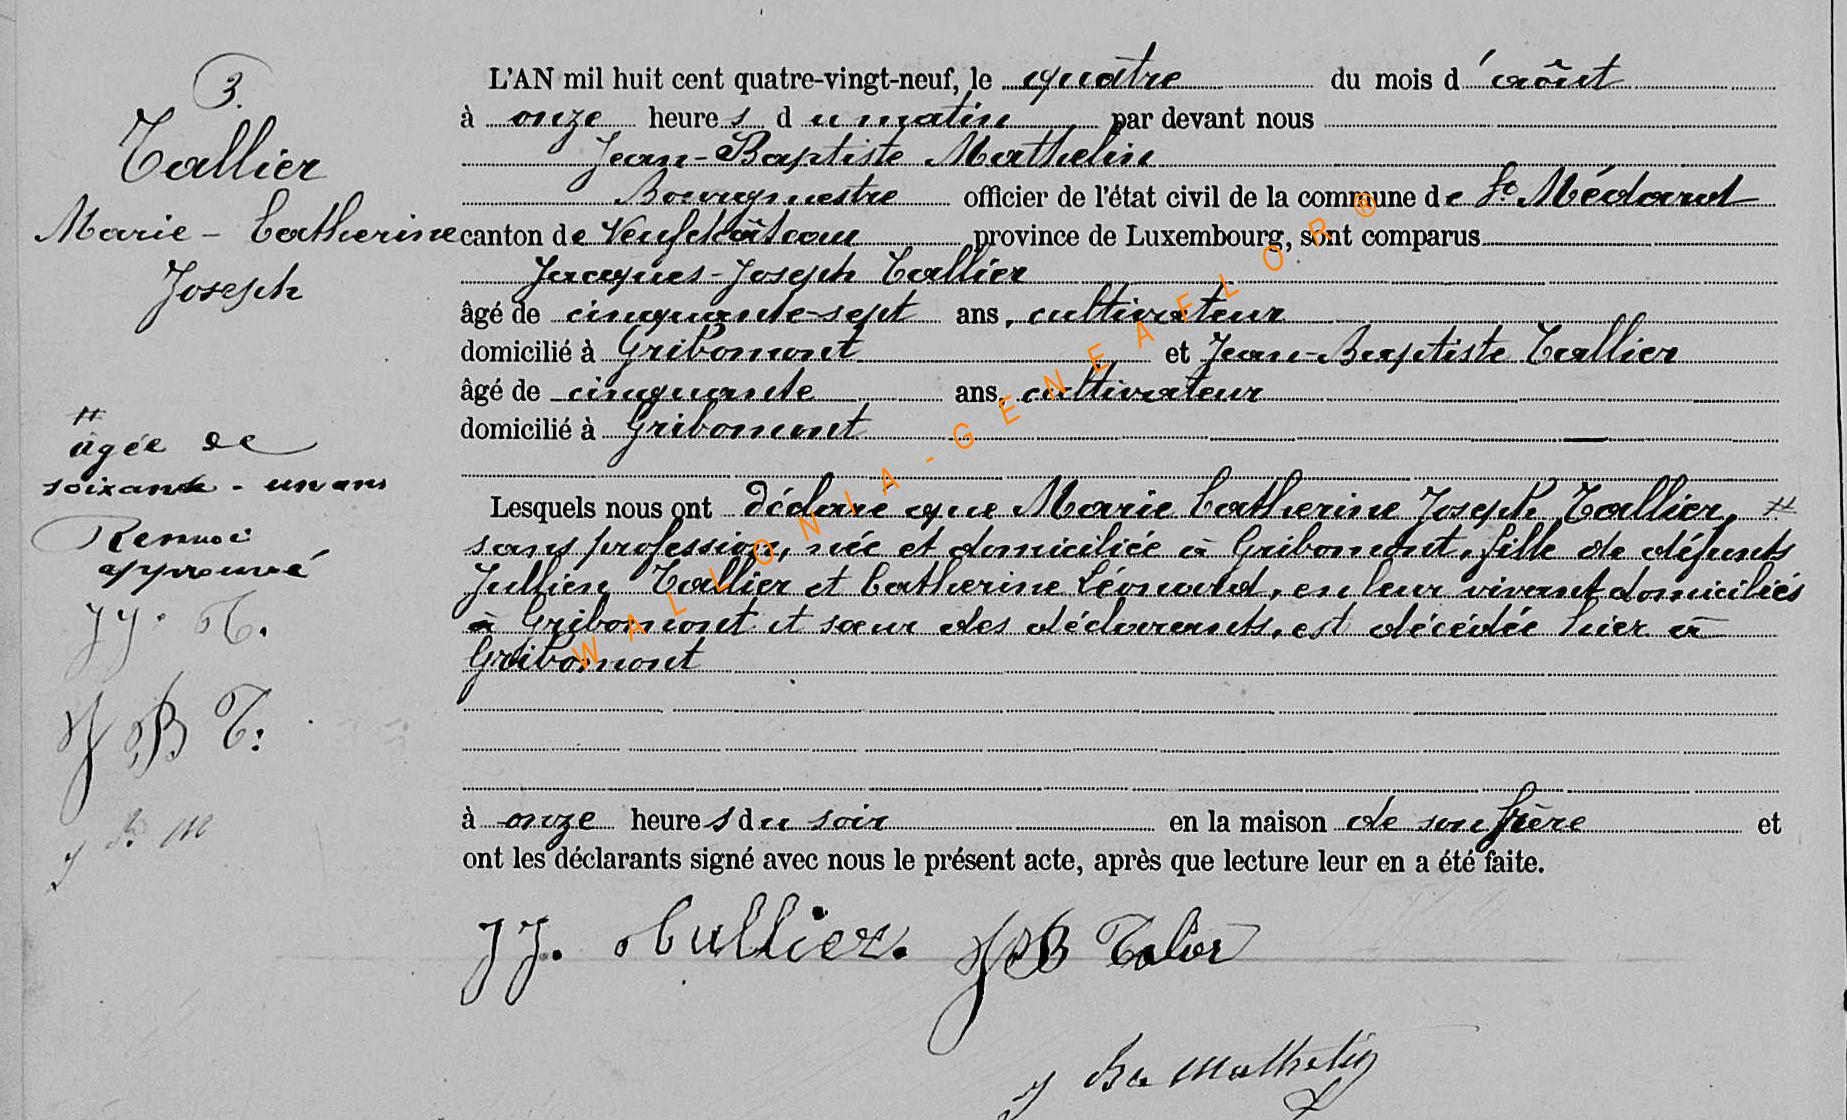 3.
Tallier
Marie - Catherine
Joseph
L'AN mil huit cent quatre-vingt-neuf, le quatre du mois d'août
à onze heures du matin par devant nous
Jean-Baptiste Mathelin
Bourgmestre officier de l'état civil de la commune de St Médard
canton de Neufchâteau province de Luxembourg, sont comparus
Jacques-Joseph Tallier
âgé de cinquante-sept ans, cultivateur
domicilié à Gribomont et Jean-Baptiste Tallier
âgé de cinquante ans, cultivateur
domicilié à Gribomont
Lesquels nous ont déclaré que Marie Catherine Joseph Tallier, #
sans profession, née et domiciliée à Gribomont, fille de défunts
Jullien Tallier et Catherine Léonard, en leur vivant domiciliés
à Gribomont et sœur des déclarants, est décédée hier à
Gribomont
à onze heures du soir en la maison de son frère et
ont les déclarants signé avec nous le présent acte, après que lecture leur en a été faite.
#
âgée de
soixante - un ans
Renvoi
approuvé
JJ. T.
J B T.
J B M
JJ. Tallier. JB Talier
J Bte Mathelin
WALLONIA-GENEAFLOR®